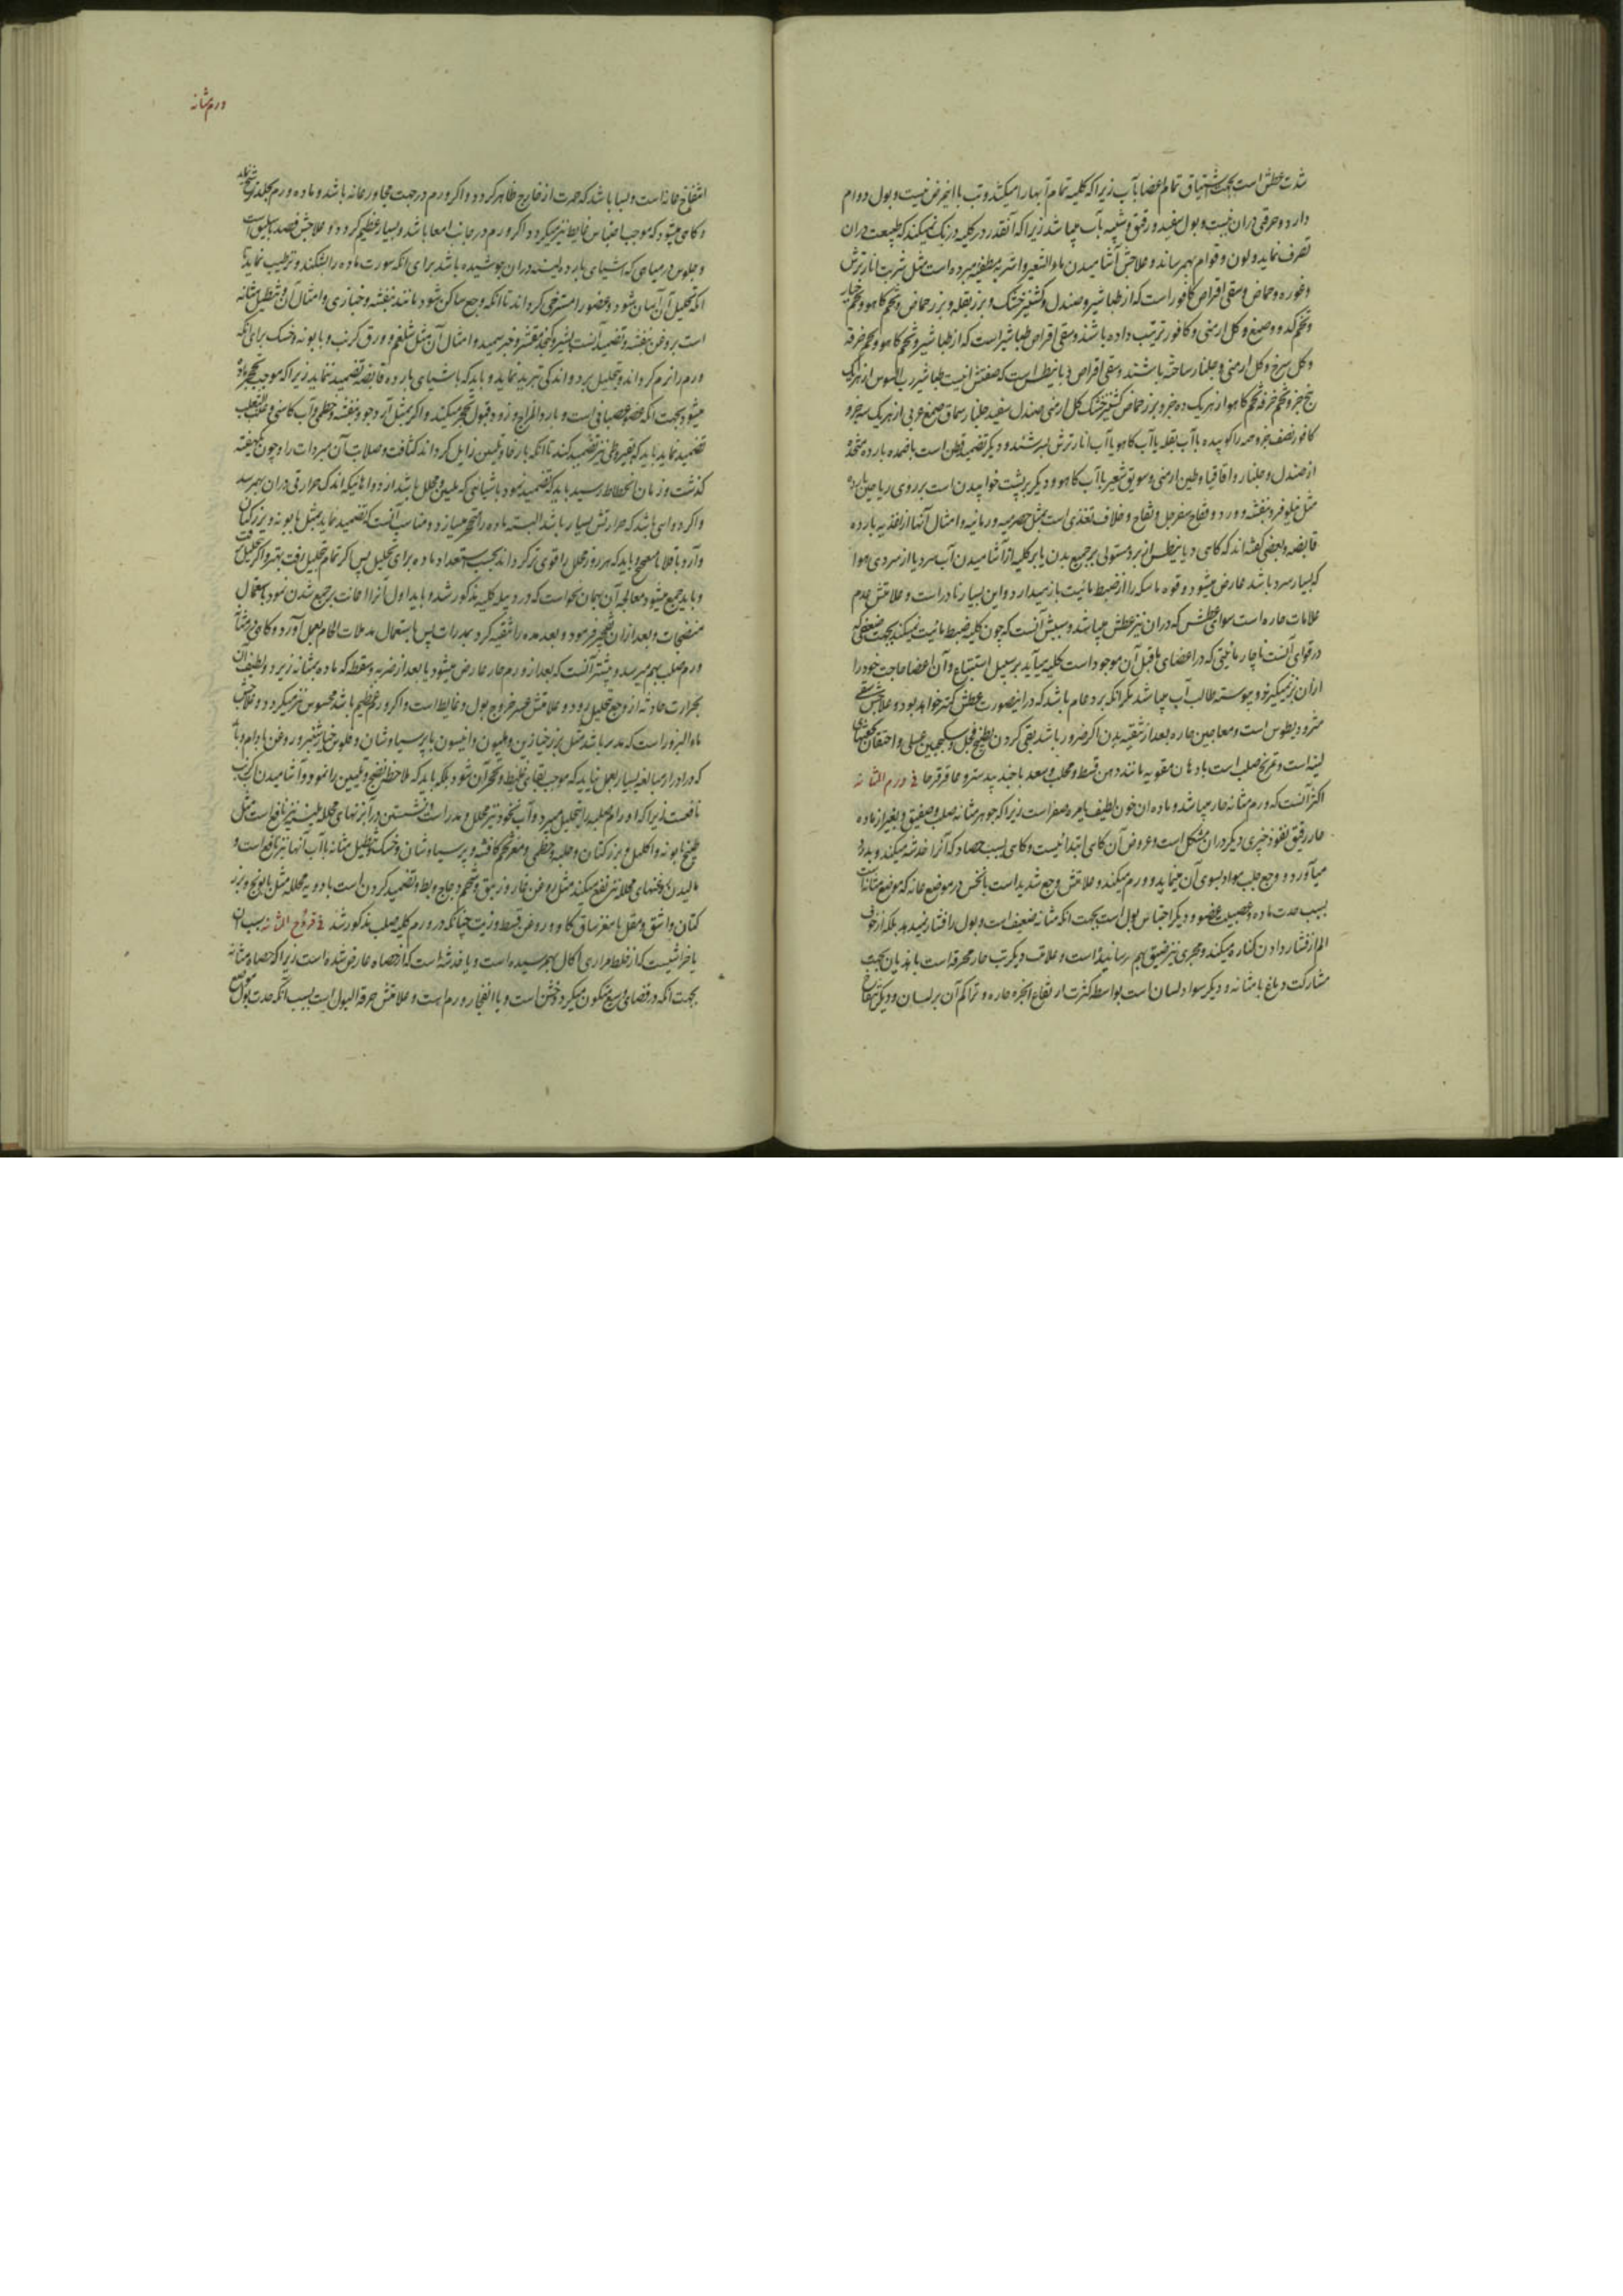 شدت عطش است بجهت اشتیاق تمام اعضا بآب زیرا که کلیه تمام آبها را میکشد و تب با این مرض نیست و بول دوام
دارد و حرقتی دران نیست و بول سفید و رقیق و شبیه بآب میباشد زیرا که آنقدر در کلیه درنک نمیکند که طبیعت دران
تصرف نماید و لون و قوام بهم رساند و علاجش آشامیدن ماء الشعیر و اشربه مطفیه مبرده است مثل شربت انار ترش
و غوره و حماض و سقی اقراص کافور است که از طباشیر و صندل و کشنیز خشک و بزر بقله و بزر حماض و تخم کاهو و تخم خیار
و تخم کدو و صمغ و کل ارمنی و کافور ترتیب داده باشند و سقی اقراص طباشیر است که از طباشیر و تخم کاهو و تخم خرفه
و کل سرخ و کل ارمنی و جلنار ساخته باشند و سقی اقراص ذیابیطس است که صفتش اینست طباشیر رب السوس از هریک
پنج جزو تخم خرفه تخم کاهو از هریک ده جزو بزر حماض کشنیز خشک کل ارمنی صندل سفید جلنار سماق صمغ عربی از هریک سه جزو
کافور نصف جزو همه را کوبیده باآب بقله یا آب کاهو یا آب انار ترش بسرشند و دیکر تضمید قطن است باضمده بارده متخذه
از صندل و جلنار و اقاقیا و طین ارمنی و سویق شعیر باآب کاهو و دیکر بر پشت خوابیدن است بر روی ریاحین بارده
مثل نیلوفر و بنفشه و ورد و فقاح سفرجل و تفاح و خلاف و تغذی است بمثل حصرمیه و رمانیه و امثال آنها از اغذیه بارده
قابضه و بعضی کفته‌اند که کاهی دیابیطس از برد مستولی بر جمیع بدن یا بر کلیه از آشامیدن آب سرد یا از سردی هوا
که بسیار سرد باشد عارض میشود و قوه ماسکه را از ضبط مائیت بازمیدارد و این بسیار نادر است و علامتش عدم
علامات حاره است سوای عطش که دران نیز عطش میباشد و سببش آنست که چون کلیه ضبط مائیت نمیکند بجهت ضعفی که
در قوای آنست ناچار مائیتی که در اعضای ماقبل آن موجود است کلیه میآید بر سبیل استتباع و آن اعضا حاجت خود را
ازان نمیکیرند و پیوسته طالب آب میباشد مکر انکه برد عام باشد که در اینصورت عطش کمتر خواهد بود و علاجش سقی
مثرودیطوس است و معاجین حاره بعد از تنقیه بدن اکر ضرور باشد بقی کردن بطبیخ فجل و سکنجبین عسلی و احتقان بحقنهای
لینه است و تمریخ صلب است بادهان مقویه مانند دهن قسط و محلب و سعد باجند بیدستر و عاقرقرحا فی ورم المثانه
اکثر آنست که ورم مثانه حار میباشد و ماده ان خون لطیف یا مره صفراست زیرا که جوهر مثانه صلب و صفیق و بغیر از ماده
حار رقیق نفوذ چیزی دیکر دران مشکل است و عروض آن کاهی ابتدائیست و کاهی بسبب حصاة که آنرا خدشه میکند و بدرد
میآورد و وجع جلب مواد بسوی آن مینماید و ورم میکند و علامتش وجع شدید است بانخس در موضع عانه که موضع مثانه است
بسبب حدت ماده و عصبیت عضو و دیکر احتباس بول است بجهت انکه مثانه ضعیف است و بول را فشار نمیدهد بلکه از خوف
الم از فشار دادن کناره میکند و مجری نیز ضیق بهم رسانیده است و علامت دیکر تب حار محرقه است با هذیان بجهت
مشارکت دماغ با مثانه و دیکر سواد لسان است بواسطه کثرت ارتفاع ابخره حاره و تراکم آن بر لسان و دیکر انتفاخ
ورم مثانه
انتفاخ عانه است و بسا باشد که حمرت از خارج ظاهر کردد و اکر ورم در جهت مجاور عانه باشد و ماده ورم بجلد
و کاهی میشود که موجب احتباس غایط نیز میکردد اکر ورم در جانب امعا باشد و بسیار عظیم کردد و علاجش فصد باسلیق است
و جلوس در میاهی که اشیای بارده لینه دران جوشیده باشد برای انکه سورت ماده را بشکند و ترطیب نماید تا
انکه تحلیل آن آسان شود و عضو را مسترخی کرداند تا انکه وجع ساکن شود مانند بنفشه و خبازی و امثال آن و تنطیل مثانه
است بروغن بنفشه و تضمید آنست بشیر و کنجد مقشر و خبز سمید و امثال آن مثل شلغم و ورق کرنب و بابونه و خسک برای انکه
ورم را نرم کرداند و تحلیل برد و اندکی تبرید نماید و باید که باشیای بارده قابضه تضمید ننماید زیرا که موجب تحجر ماده
میشود بجهت انکه عضو عصبانی است و بارد المزاج و زود قبول تحجر میکند و اکر بمثل آرد جو و بنفشه و خطمی و آب کاسنی و عنب الثعلب
تضمید نماید باید که بقیروطی نیز تضمید کنند تا انکه بارخا و تلیین زایل کرداند کثافت و صلابت آن مبردات را و چون یکهفته
کذشت و زمان انحطاط رسید باید که تضمید نمود باشیائی که ملین و محلل باشد از دوا هائیکه اندک حرارتی دران بهم رسد
و اکر دوایی باشد که حرارتش بسیار باشد البته ماده را متحجر میسازد و مناسب آنست که تضمید نماید بمثل بابونه و بزر کتان
و آرد باقلا با میفختج و باید که هر روز محلل را قوی‌تر کرداند بحسب استعداد ماده برای تحلیل پس اکر تمام تحلیل رفت بهتر و اکر تحلیل نرفت
و باید جمع میشود معالجه آن بهمان نحو است که در دبیله کلیه مذکور شد و باید اول آنرا اعانت بر جمع شدن نمود باستعمال
منضجات و بعد ازان تفجیر فرمود و بعد مده را تنقیه کرد بمدرات پس باستعمال مدملات التحام بعمل آورد و کاهی در مثانه
ورم صلب بهم میرسد و بیشتر آنست که بعد از ورم حار عارض میشود یا بعد از ضربه و سقطه که ماده بمثانه زیزد و لطیف آن
بحرارت حادثه از وجع تحلیل رود و علامتش عسر خروج بول و غایط است و اکر ورم عظیم باشد محسوس نیز میکردد و علاجش
ماء البزور است که مدر باشد مثل بزر خیازین و هلیون و انیسون با پرسیاوشان و فلوس خیارشنبر و روغن بادام و باید
که در ادرار مبالغه بسیار بعمل نیاید که موجب بقای غلیظ و تحجر آن شود بلکه باید که ملاحظه نضج و تلیین را نمود و آشامیدن آب کرنب
نافعست زیرا که اورام صلبه را تحلیل میبرد و آب نخود نیز محلل و مدر است و نشستن در آبزنهای محلله ملینه نیز نافع است مثل
طبیخ بابونه و اکلیل و بزر کتان و حلبه و خطمی و مغز تخم کافشه و پرسیاوشان و خسک و تنطیل مثانه باآب آنها نیز نافع است و
مالیدن روغنهای محلله نیز نفع میکند مثل روغن غار و زنبق و شحم دجاج و بط و تضمید کردن است بادویه محلله مثل بابونج و بزر
کتان و اشق و مقل با مغز ساق کاو و روغن قسط و زیت چنانکه در ورم کلیه صلب مذکور شد فی قروح المثانه سبب آن
یا خراشیست که از خلط مراری اکال بهم رسیده است و یا خدشه است که از حصاة عارض شده است زیرا که حصاة مثانه
بجهت انکه در فضای وسیع متکون میکردد خشن است و یا انفجار ورم است و علامتش حرقة البول است بسبب انکه حدت بول موضع